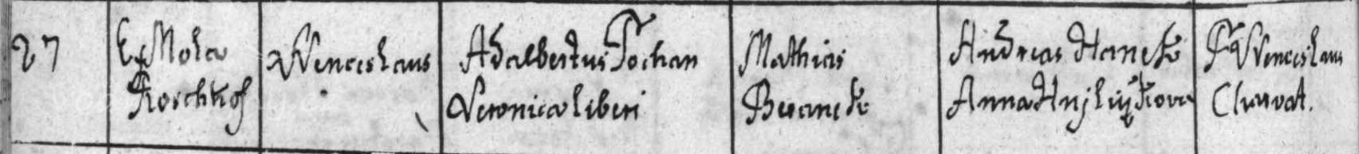 27
Ex Mola
Roschkof
Wenceslaus
Adalbertus Pochan
Veronica liberi
Mathias
Beranek
Andreas Hanek
Anna
P. Wenceslaus
Charvat.